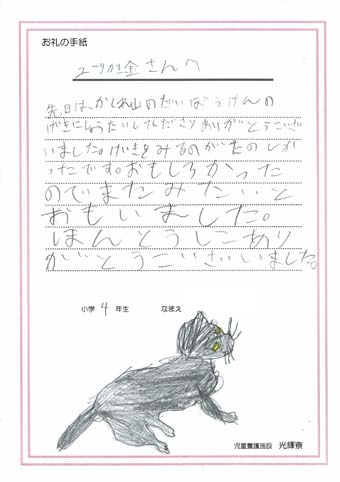 お礼の手紙
さんへ
先日は、かしわ山のだいぼうけんの
げきにしょうたいしてくださりありがとうござい
いました。げきをみるのがたのしか
ったです。おもしろかった
のでまたみたいと
おもいました。
ほんとうにあり
がとうございました。
小学 4 年生 なまえ
児童養護施設 光輝寮